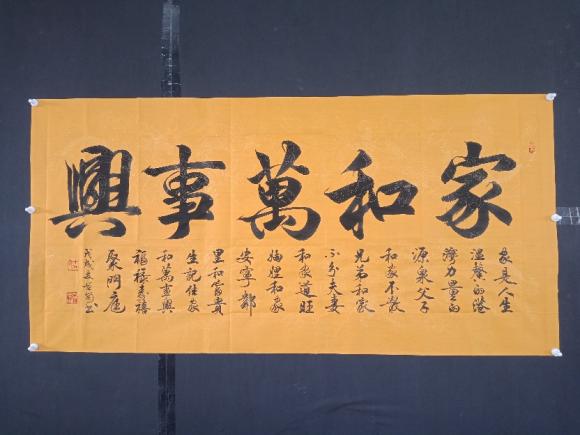 家和萬事興
家是人生
温馨的港
湾力量的
源泉父子
和家不散
兄弟和家
不分夫妻
和家道旺
妯娌和家
安寧鄰
里和富貴
生記住家
和萬事興
福禄寿禧
聚門庭
戊戌